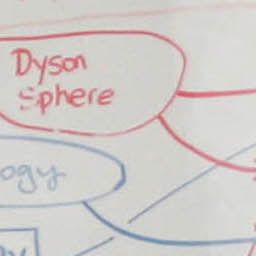 Dyson
Sphere
ogy